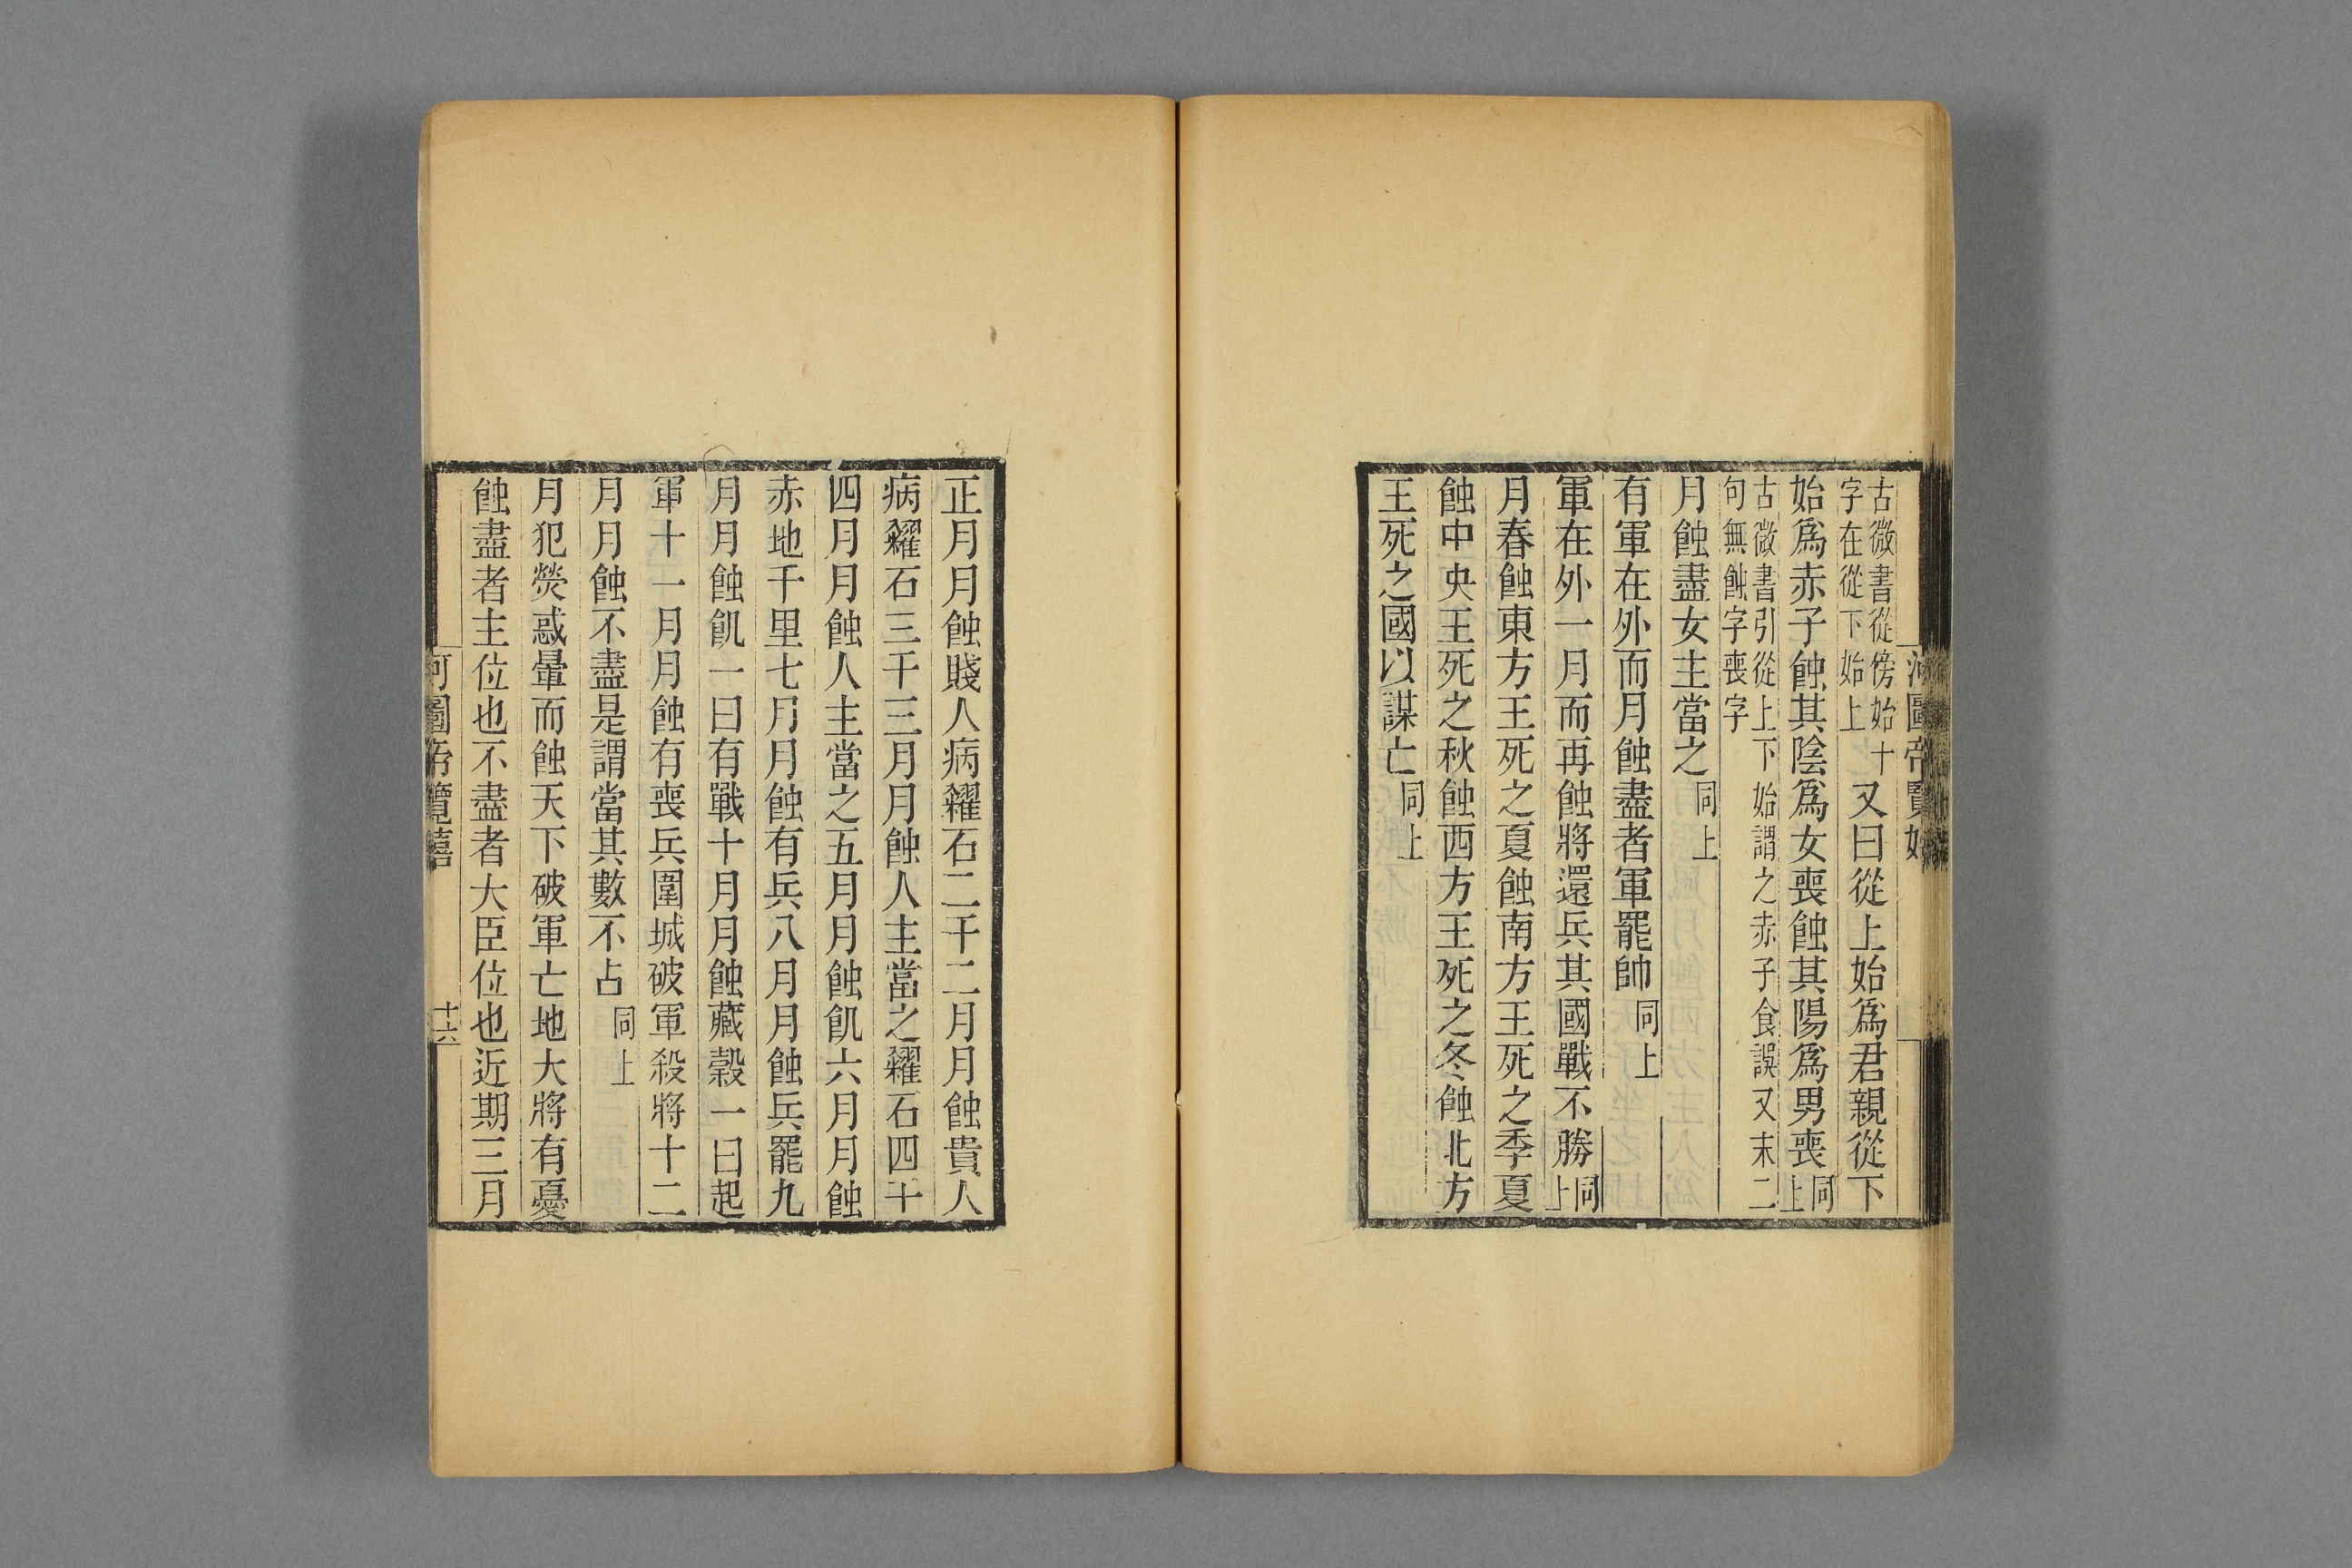 古微書從傍始十
字在從下始上
又曰從上始爲君親從下
始爲赤子蝕其陰爲女喪蝕其陽爲男喪同上
古微書引從上下始謂之赤子食誤又末二
句無蝕字喪字
月蝕盡女主當之同上
有軍在外而月蝕盡者軍罷帥同上
軍在外一月而再蝕將還兵其國戰不勝同上
月春蝕東方王死之夏蝕南方王死之季夏
蝕中央王死之秋蝕西方王死之冬蝕北方
王死之國以謀亡同上
正月月蝕賤人病糴石二千二月月蝕貴人
病糴石三千三月月蝕人主當之糴石四千
四月月蝕人主當之五月月蝕飢六月月蝕
赤地千里七月月蝕有兵八月月蝕兵罷九
月月蝕飢一曰有戰十月月蝕藏穀一曰起
軍十一月月蝕有喪兵圍城破軍殺將十二
月月蝕不盡是謂當其數不占同上
月犯熒惑暈而蝕天下破軍亡地大將有憂
蝕盡者主位也不盡者大臣位也近期三月
河圖帝覽嬉
十六